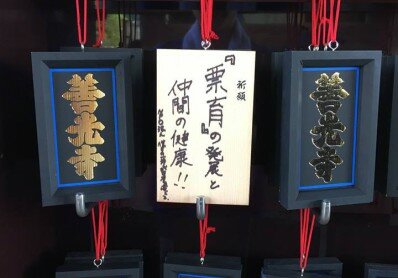 善光寺
祈願
『栗育』の発展と
仲間の健康!!
善光寺